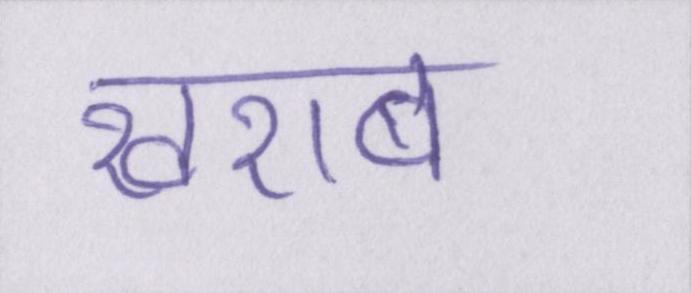 खराब